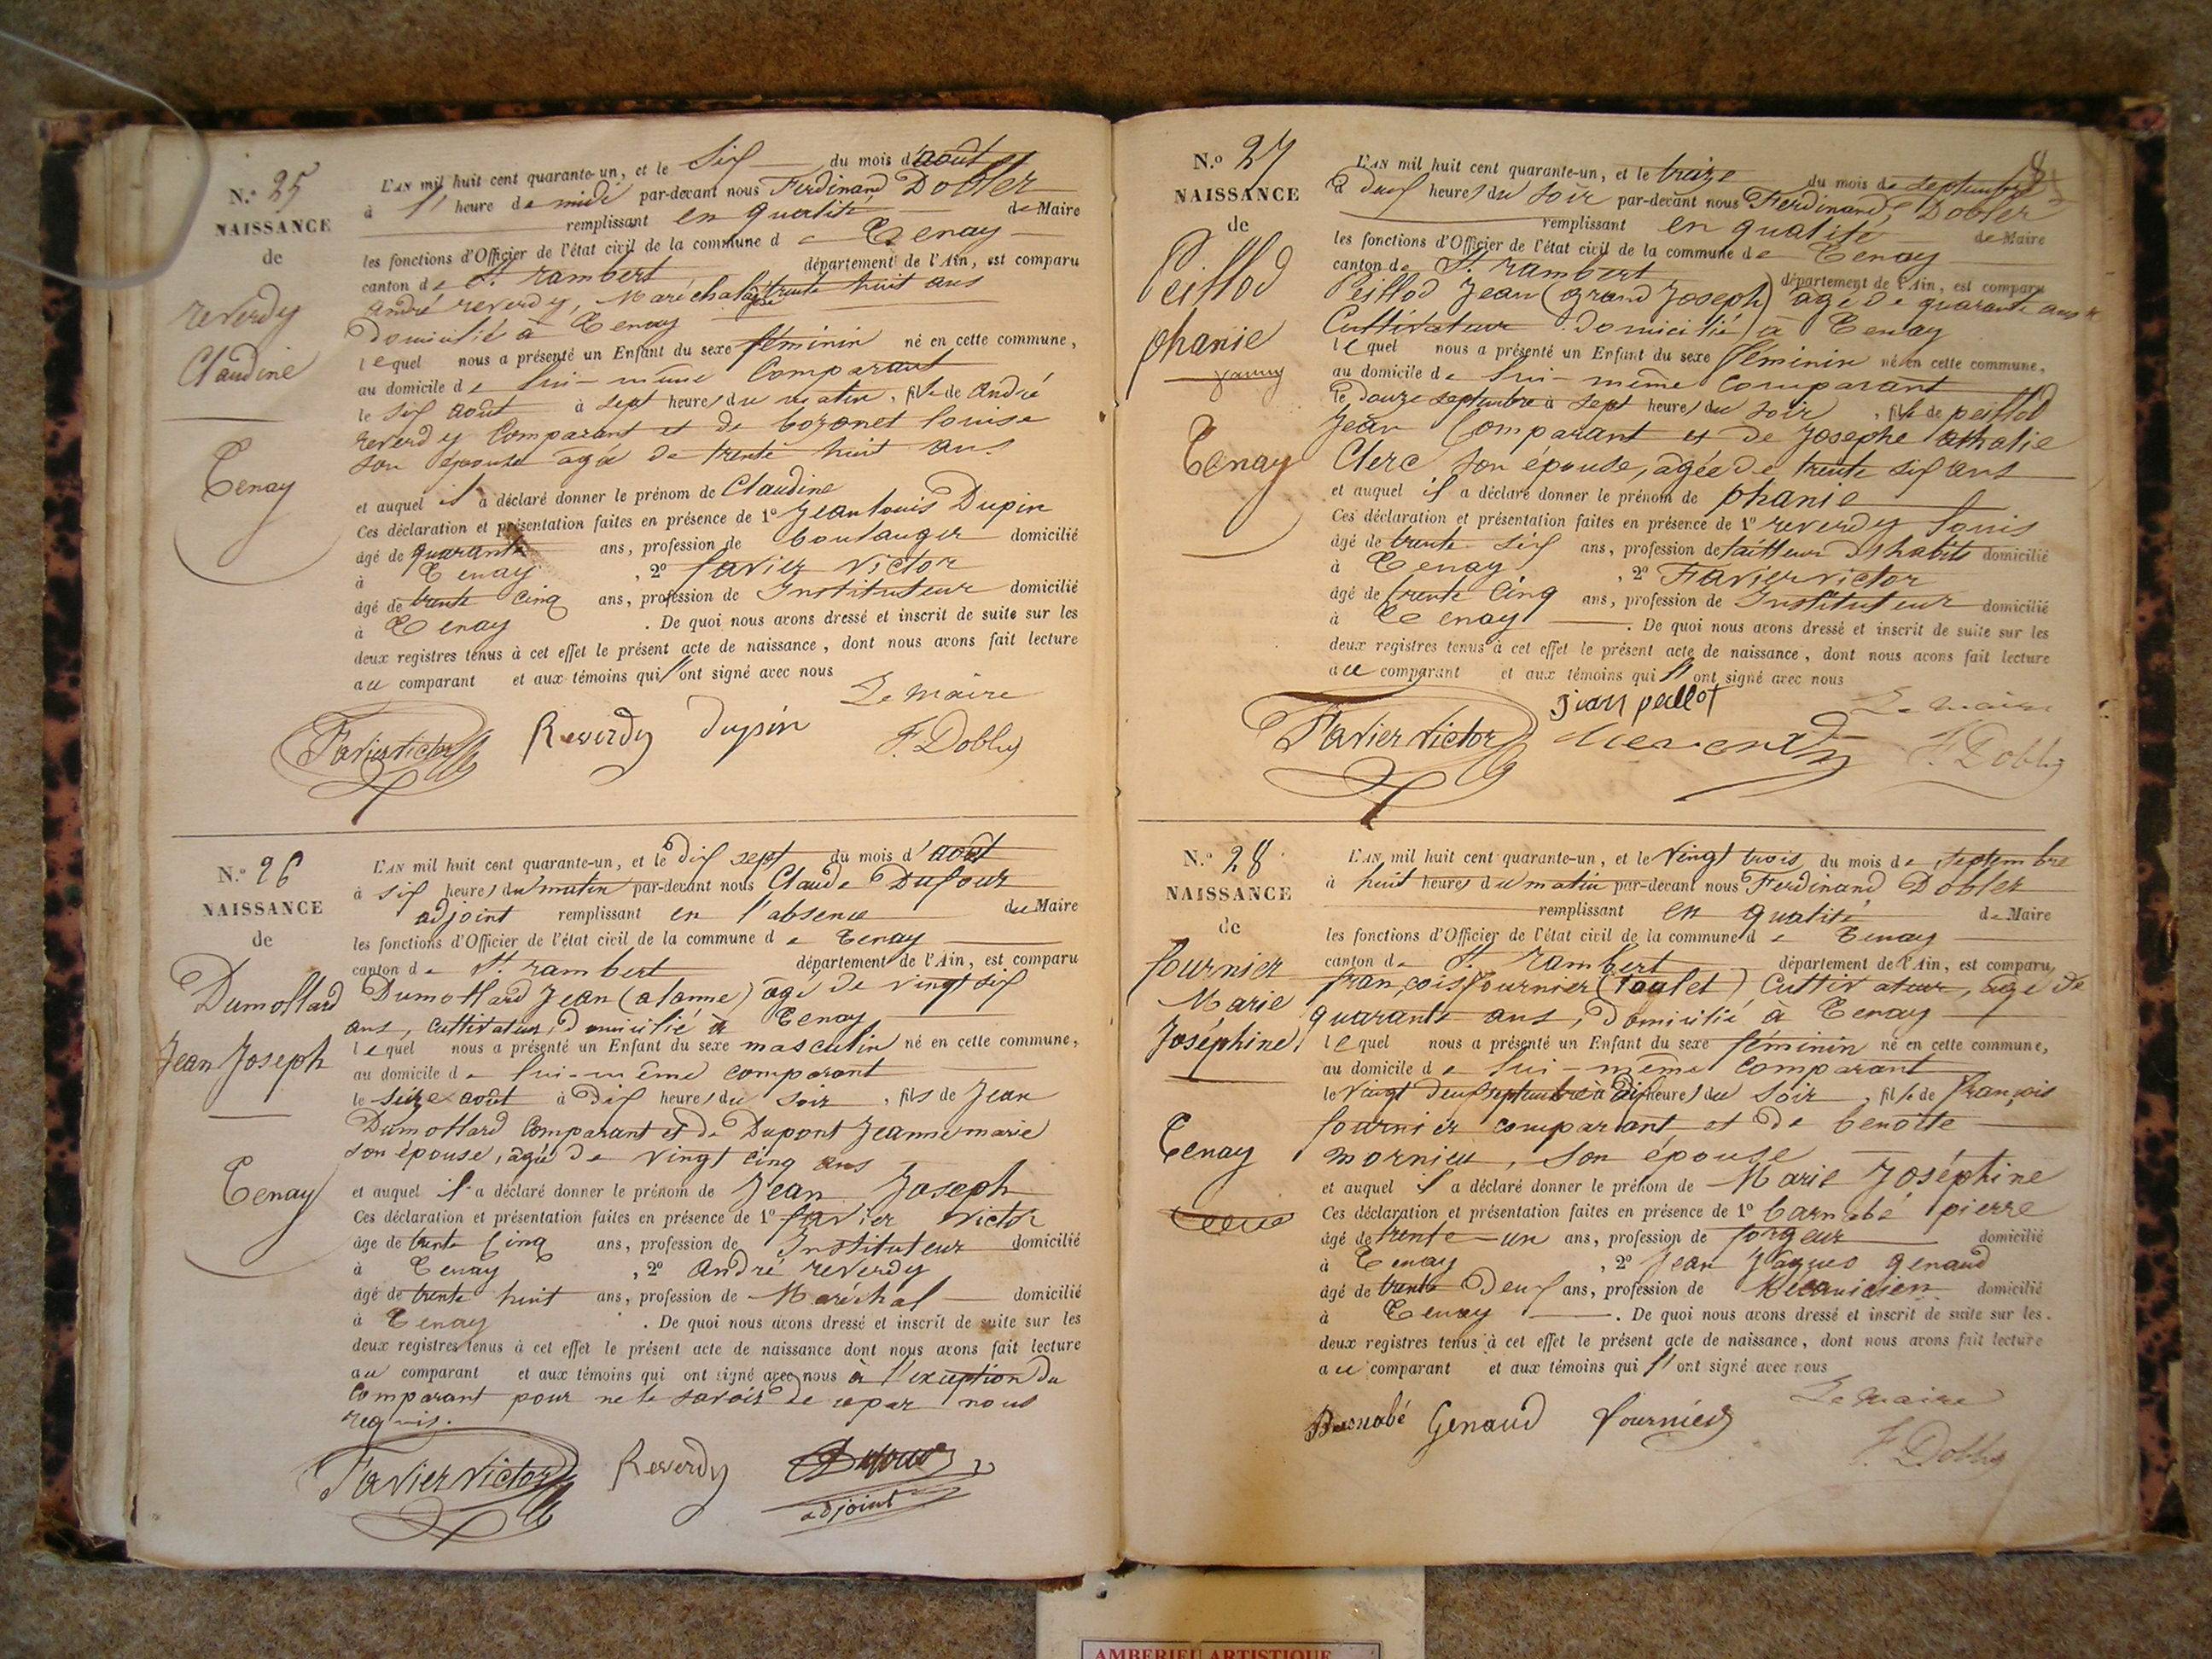 N.° 25
NAISSANCE
de
reverdy
Claudine
Tenay
L'AN mil huit cent quarante-un, et le Six du mois d'août
à l' heure de midi par-devant nous Ferdinand Dobler
remplissant en qualité de Maire
les fonctions d'Officier de l'état civil de la commune de Tenay
canton de St. rambert département de l'Ain, est comparu
andré reverdy, Maréchal, agé trente huit ans
Domicilié à Tenay
lequel nous a présenté un Enfant du sexe féminin né en cette commune,
au domicile de lui-même Comparant
le six août à sept heures du matin, fille de andré
reverdy Comparant et de bozonet louise
son épouse agée de trente huit ans
et auquel il a déclaré donner le prénom de Claudine
Ces déclaration et présentation faites en présence de 1° Jean louis Dupin
âgé de quarante ans, profession de boulanger domicilié
à Tenay, 2° favier victor
âgé de trente cinq ans, profession de Instituteur domicilié
à Tenay. De quoi nous avons dressé et inscrit de suite sur les
deux registres tenus à cet effet le présent acte de naissance, dont nous avons fait lecture
au comparant et aux témoins qui l'ont signé avec nous
Le Maire
Favier victor Reverdy Dupin F. Dobler
N.° 26
NAISSANCE
de
Dumollard
Jean Joseph
Tenay
L'AN mil huit cent quarante-un, et le dix sept du mois d'août
à six heures du matin par-devant nous Claude Dufour
adjoint remplissant en l'absence du Maire
les fonctions d'Officier de l'état civil de la commune de Tenay
canton de St. rambert département de l'Ain, est comparu
Dumollard Jean (alanne) agé de vingt six
ans, cultivateur, domicilié à Tenay
lequel nous a présenté un Enfant du sexe masculin né en cette commune,
au domicile de lui-même comparant
le seize août à dix heures du soir, fils de Jean
Dumollard Comparant et de Dupont Jeanne marie
son épouse, agée de vingt cinq ans
et auquel il a déclaré donner le prénom de Jean Joseph
Ces déclaration et présentation faites en présence de 1° favier victor
âgé de trente cinq ans, profession de Instituteur domicilié
à Tenay, 2° andré reverdy
âgé de trente huit ans, profession de Maréchal domicilié
à Tenay. De quoi nous avons dressé et inscrit de suite sur les
deux registres tenus à cet effet le présent acte de naissance dont nous avons fait lecture
au comparant et aux témoins qui ont signé avec nous à l'exception du
Comparant pour ne le savoir de ce par nous
requis.
Favier victor Reverdy Dufour
adjoint
N.° 27
NAISSANCE
de
Peillod
phanie
Tenay
L'AN mil huit cent quarante-un, et le treize du mois de septembre
à deux heures du soir par-devant nous Ferdinand Dobler
remplissant en qualité de Maire
les fonctions d'Officier de l'état civil de la commune de Tenay
canton de St. rambert département de l'Ain, est comparu
Peillod Jean (grand Joseph) agé de quarante ans
Cultivateur domicilié à Tenay
lequel nous a présenté un Enfant du sexe féminin né en cette commune,
au domicile de lui-même comparant
le douze septembre à sept heures du soir, fille de peillod
Jean Comparant et de Josephe athalie
Clerc son épouse, agée de trente six ans
et auquel il a déclaré donner le prénom de phanie
Ces déclaration et présentation faites en présence de 1° reverdy louis
âgé de trente six ans, profession de tailleur d'habits domicilié
à Tenay, 2° Favier victor
âgé de trente cinq ans, profession de Instituteur domicilié
à Tenay. De quoi nous avons dressé et inscrit de suite sur les
deux registres tenus à cet effet le présent acte de naissance, dont nous avons fait lecture
au comparant et aux témoins qui l'ont signé avec nous
jean peillot Le Maire
Favier Victor F. Dobler
N.° 28
NAISSANCE
de
fournier
Marie
Joséphine
Tenay
L'AN mil huit cent quarante-un, et le vingt trois du mois de septembre
à huit heures du matin par-devant nous Ferdinand Dobler
remplissant en qualité de Maire
les fonctions d'Officier de l'état civil de la commune de Tenay
canton de St. rambert département de l'Ain, est comparu
françois fournier (Toulet) Cultivateur, agé de
quarante ans, domicilié à Tenay
lequel nous a présenté un Enfant du sexe féminin né en cette commune,
au domicile de lui-même Comparant
le vingt deux septembre à dix heures du soir, fille de françois
fournier comparant et de benoite
mornieu, son épouse
et auquel il a déclaré donner le prénom de Marie Joséphine
Ces déclaration et présentation faites en présence de 1° barnabé pierre
âgé de trente-un ans, profession de forgeur domicilié
à Tenay, 2° Jean Jaques genaud
âgé de trente deux ans, profession de Mecanicien domicilié
à Tenay. De quoi nous avons dressé et inscrit de suite sur les
deux registres tenus à cet effet le présent acte de naissance, dont nous avons fait lecture
au comparant et aux témoins qui l'ont signé avec nous
Le Maire
Barnabé Genaud fournier F. Dobler
AMBERIEU ARTISTIQUE